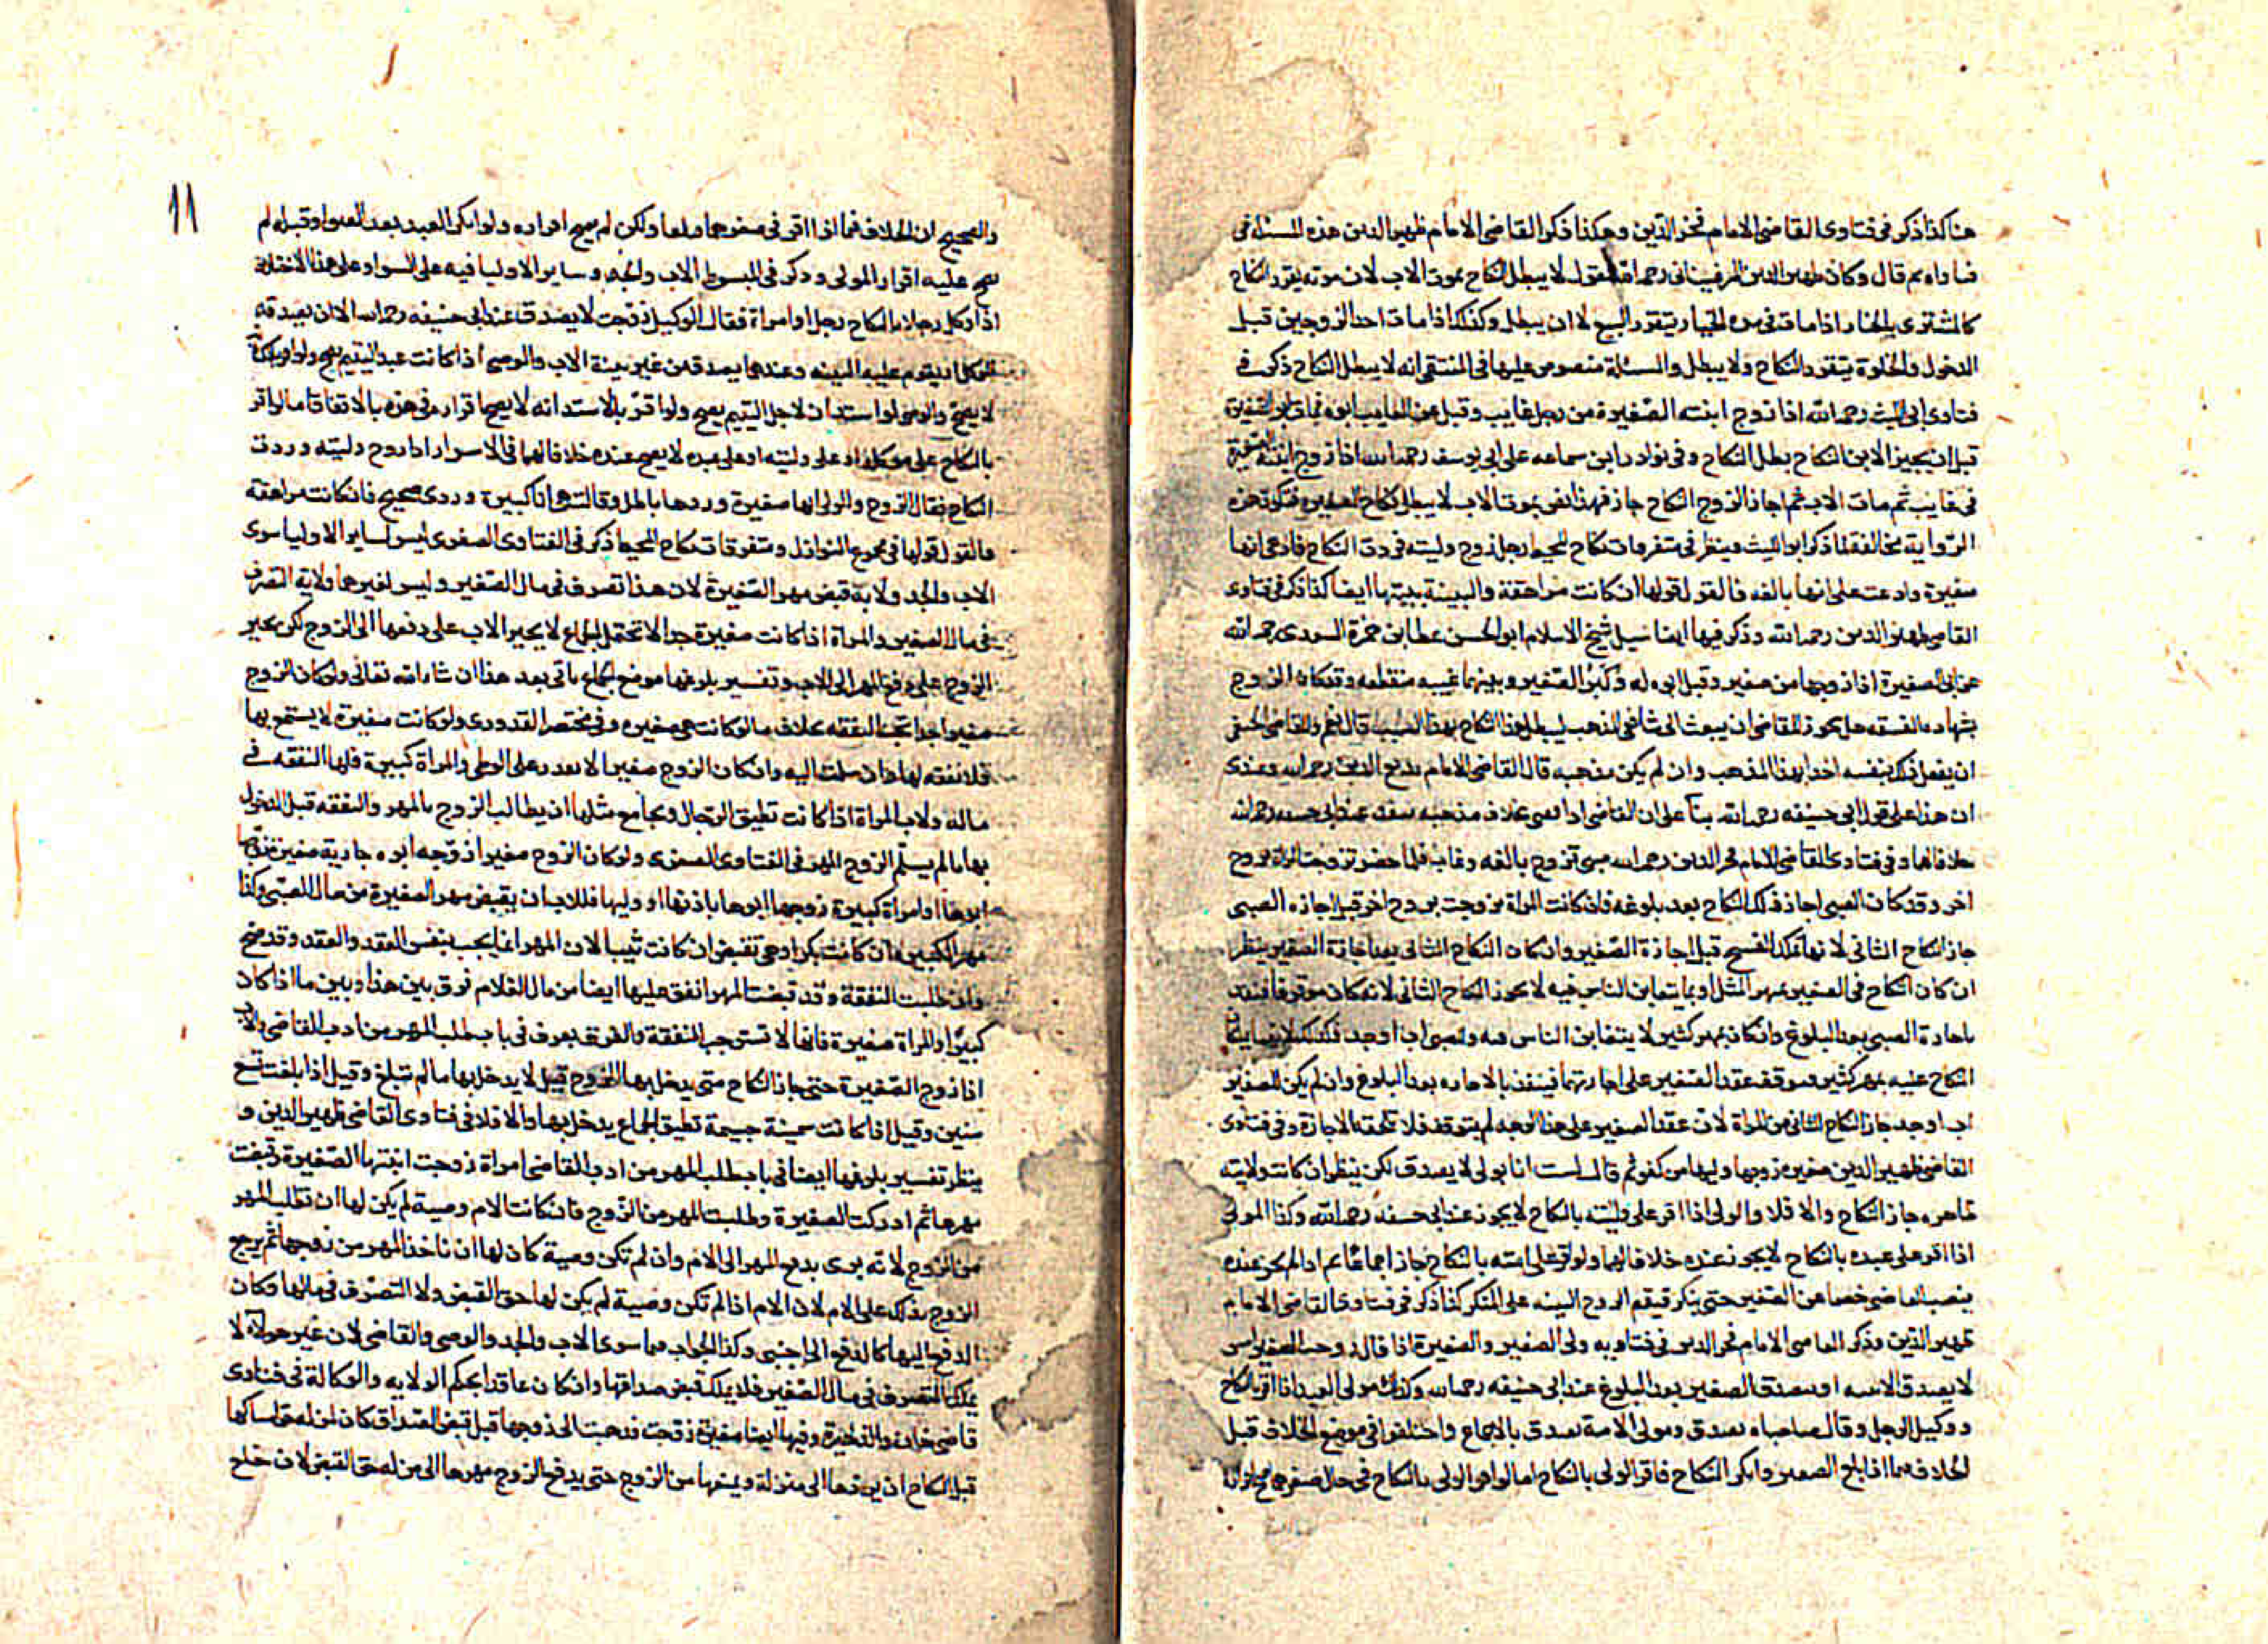 هنا كذا ذكر في فتاوى القاضي الامام فخر الدين وهكذا ذكر القاضي الامام ظهير الدين هذه المسئلة في
فتاواه ثم قال وكان ظهير الدين المرغيناني رحمه الله يقول لا يبطل النكاح بموت الاب لان موته يقرر النكاح
كالمشتري بالخيار اذا مات في مدة الخيار يتقرر البيع لا ان يبطل وكذلك اذا مات احد الزوجين قبل
الدخول والخلوة يتقرر النكاح ولا يبطل والمسئلة منصوص عليها في المنتقى انه لا يبطل النكاح ذكر في
فتاوى ابي الليث رحمه الله اذا زوج ابنته الصغيرة من رجل غايب وقبل عن الغايب ابوه فمات ابو الصغيرة
قبل ان يجيز الابن النكاح بطل النكاح وفي نوادر ابن سماعه على ابي يوسف رحمه الله اذا زوج ابنته الصغيرة
في غايب ثم مات الاب ثم اجاز الزوج النكاح جاز فهذا نص بموت الاب لا يبطل نكاح الصغير فتكون هذه
الرواية مخالفة لما ذكر ابو الليث وينظر في متفرقات نكاح المحيط رجل زوج وليته فردت النكاح فادعى انها
صغيرة وادعت على انها بالغه فالقول قولها ان كانت مراهقة والبينة بينتها ايضا كذا ذكر في فتاوى
القاضي ظهير الدين رحمه الله وذكر فيها ايضا سيل شيخ الاسلام ابو الحسن عطا بن حمزة السعدي رحمه الله
عن ابي الصغيرة اذا زوجها من صغير وقبل ابوه له وكبر الصغير وبينهما غيبه منقطعه وقد كان الزوج
بشهاده الفسقه هل يجوز للقاضي ان يبعث الى شافعي المذهب ليبطل هذا النكاح بهذا السبب قال نعم وللقاضي الحنفي
ان يفعل ذلك بنفسه اخدا بهذا المذهب وان لم يكن مذهبه قال القاضي الامام بديع الدين رحمه الله وعندي
ان هذا على قول ابي حنيفه رحمه الله بنآ على ان القاضي اذا قضى بخلاف مذهبه ينفذ عند ابي حنيفه رحمه الله
خلافا لهما وفي فتاوى القاضي الامام فخر الدين رحمه الله صبي تزوج بالغه وغاب فلما حضر تزوجت المراة بزوج
اخر وقد كان الصبي اجاز ذلك النكاح بعد بلوغه فان كانت المراة تزوجت بزوج اخر قبل اجازه الصبي
جاز النكاح الثاني لانها تملك الفسخ قبل اجازة الصغير وان كان النكاح الثاني بعد اجازة الصغير ينظر
ان كان النكاح في الصغير بمهر المثل او بما يتغابن الناس فيه لا يجوز النكاح الثاني لانه كان موقوفا فينفذ
باجازة الصبي بعد البلوغ وان كان بمهر كثير لا يتغابن الناس فيه وللصبي اب او جد فكذلك
النكاح عليه بمهر كثير فتوقف عقد الصغير على اجازتهما فينفذ بالاجازه بعد البلوغ وان لم يكن للصغير
اب او جد جاز النكاح الثاني من المراة لان عقد الصغير على هذا الوجه لم يتوقف فلا تلحقه الاجازة وفي فتاوى
القاضي ظهير الدين صغيره زوجها وليها من كفو ثم قال لست انا بولي لا يصدق لكن ينظر ان كانت ولايته
ظاهره جاز النكاح والا فلا والولي اذا اقر على وليته بالنكاح لا يجوز عند ابي حنيفه رحمه الله وكذا المولى
اذا اقر على عبده بالنكاح لا يجوز عنده خلافا لهما ولو اقر على امته بالنكاح جاز اجماعا ثم اذا لم يجز عنده
ينصب القاضي خصما عن الصغير حتى ينكر فيقيم الزوج البينه على المنكر كذا ذكر في فتاوى القاضي الامام
ظهير الدين وذكر القاضي الامام فخر الدين في فتاويه ولي الصغير والصغيرة اذا قال زوجت الصغير امس
لا يصدق الا ببينه او يصدق الصغير بعد البلوغ عند ابي حنيفه رحمه الله وكذلك مولى العبد اذا اقر بالنكاح
ووكيل الرجل وقال صاحباه يصدق ومولى الامة يصدق بالاجماع واختلفوا في موضع الخلاف قيل
الخلاف فيما اذا بلغ الصغير وانكر النكاح فاقر الولي بالنكاح اما لو اقر الولي بالنكاح في حال صغرهما صح اقراره
والصحيح ان الخلاف فيما اذا اقر في صغرهما ولكن لم يصح اقراره ولو انكر العبد بعد العتق او قبله لم
يصح عليه اقرار المولى وذكر في المبسوط الاب والجد وساير الاوليا فيه على السواء وعلى هذا الاختلاف
اذا وكل رجلا بالنكاح رجل او امراة فقال الوكيل زوجت لا يصدق عند ابي حنيفه رحمه الله الا ان يصدقه
الموكل او تقوم عليه البينه وعندهما يصدق من غير بينة الاب والوصي اذا كانت عبد اليتيم صح ولو اقر بالكتابة
لا يصح والوصي لو استدان لاجل اليتيم يصح ولو اقر بالاستدانه لا يصح اقراره في هذه بالاتفاق اما لو اقر
بالنكاح على موكله او على وليته او على عبده لا يصح عنده خلافا لهما في الاسرار اذا زوج وليته وردت
النكاح فقال الزوج والولي انها صغيرة وردها باطل وقالت هي انا كبيرة وردي صحيح فان كانت مراهقه
فالقول قولها في مجموع النوازل ومتفرقات نكاح المحيط ذكر في الفتاوى الصغرى ليس لساير الاوليا سوى
الاب والجد ولاية قبض مهر الصغيرة لان هذا تصرف في مال الصغير وليس لغيرهما ولاية التصرف
في مال الصغير والمراة اذا كانت صغيرة جدا لا تحتمل الجماع لا يجبر الاب على دفعها الى الزوج لكن يجبر
الزوج على دفع المهر الى الاب وتفسير بلوغها موضع الجماع ياتي بعد هذا ان شا الله تعالى ولو كان الزوج
صغيرا جدا تجب النفقه بخلاف ما لو كانت هي صغيره وفي مختصر القدوري ولو كانت صغيرة لا يستمتع بها
فلا نفقه لها وان سلمت اليه وان كان الزوج صغيرا لا يقدر على الوطي والمراة كبيرة فلها النفقه في
ماله ولاب المراة اذا كانت تطيق الرجال ويجامع مثلها ان يطالب الزوج بالمهر والنفقه قبل الدخول
بها ما لم يسلم الزوج المهر في الفتاوى الصغرى ولو كان الزوج صغيرا زوجه ابوه جارية صغيرة زوجها
ابوها او امراة كبيرة زوجها ابوها باذنها او وليها فللاب ان يقبض مهر الصغيرة من مال الصبي وكذا
مهر الكبيرة ان كانت بكرا وهي تقبض ان كانت ثيبا لان المهر انما يجب بنفس العقد والعقد وقد صح
وان طلبت النفقة وقد قبضت المهر انفق عليها ايضا من مال الغلام فرق بين هذا وبين ما اذا كان
كبيرا والمراة صغيرة فانها لا تستوجب النفقة والفرق يعرف في باب طلب المهر من ادب القاضي والاب
اذا زوج الصغيرة حتى جاز النكاح متى يدخل بها الزوج قيل لا يدخل بها ما لم تبلغ وقيل اذا بلغت تسع
سنين وقيل اذا كانت سمينة جسيمة تطيق الجماع يدخل بها والا فلا في فتاوى القاضي ظهير الدين و
ينظر تفسير بلوغها ايضا في باب طلب المهر من ادب القاضي امراة زوجت ابنتها الصغيرة وقبضت
مهرها ثم ادركت الصغيرة وطلبت المهر من الزوج فان كانت الام وصية لم يكن لها ان تطلب المهر
من الزوج لانه برى بدفع المهر الى الام وان لم تكن وصية كان لها ان تاخذ المهر من زوجها ثم يرجع
الزوج بذلك على الام لان الام اذا لم تكن وصية لم يكن لها حق القبض ولا التصرف في مالها وكان
الدفع اليها كالدفع الى اجنبي وكذا الجواب فيما سوى الاب والجد والوصي والقاضي لان غير هولآء لا
يملك التصرف في مال الصغير فلا يملك قبض صداقها وان كان عاقدا بحكم الولايه والوكالة في فتاوى
قاضي خان والذخيرة وفيها ايضا صغيرة زوجت فذهبت الى زوجها قبل قبض الصداق كان لمن له حق امساكها
قبل النكاح ان يردها الى منزله ويمنعها من الزوج حتى يدفع الزوج مهرها الى من له حق القبض لان
١١